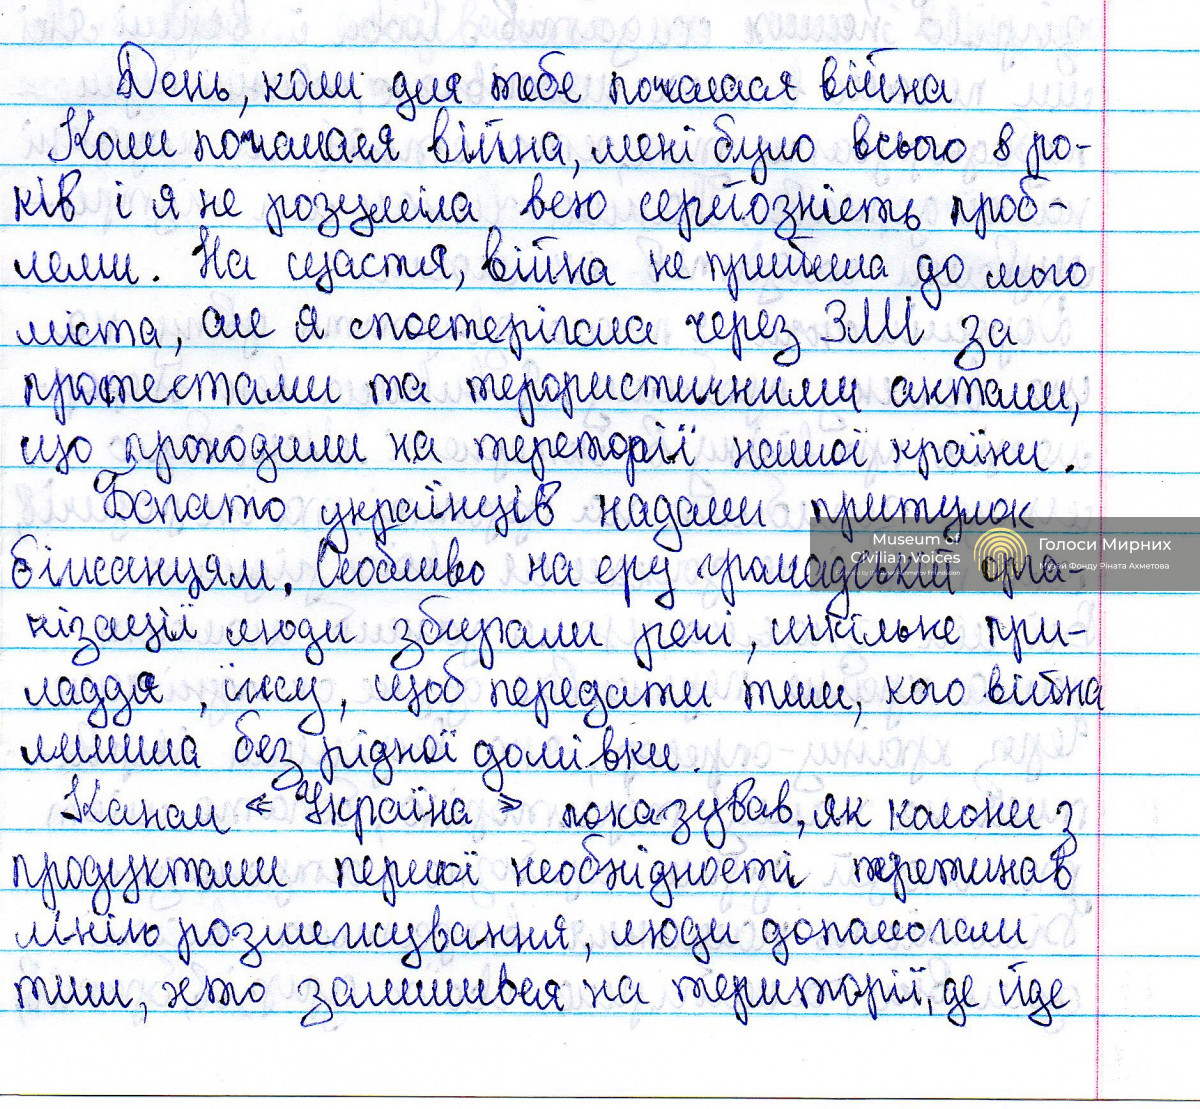 День, коли для тебе почалася війна
Коли почалася війна, мені було всього 8 ро-
ків і я не розуміла всю серйозність проб-
леми. На щастя, війна не прийшла до мого
міста, але я спостерігала через ЗМІ за
протестами та терористичними актами,
що проходили на тереторії нашої країни.
Багато українців надали притулок
біженцям. Особливо на еру громадські орга-
нізації люди збирали речі, шкільне при-
ладдя, їжу, щоб передати тим, кого війна
лишила без рідної домівки.
Канал «Україна» показував, як колони з
продуктами першої необхідності перетинав
лінію розмежування, люди допомогали
тим, хто залишився на території, де йде
Museum of
Civilian Voices
Голоси Мирних
Музей Фонду Ріната Ахметова